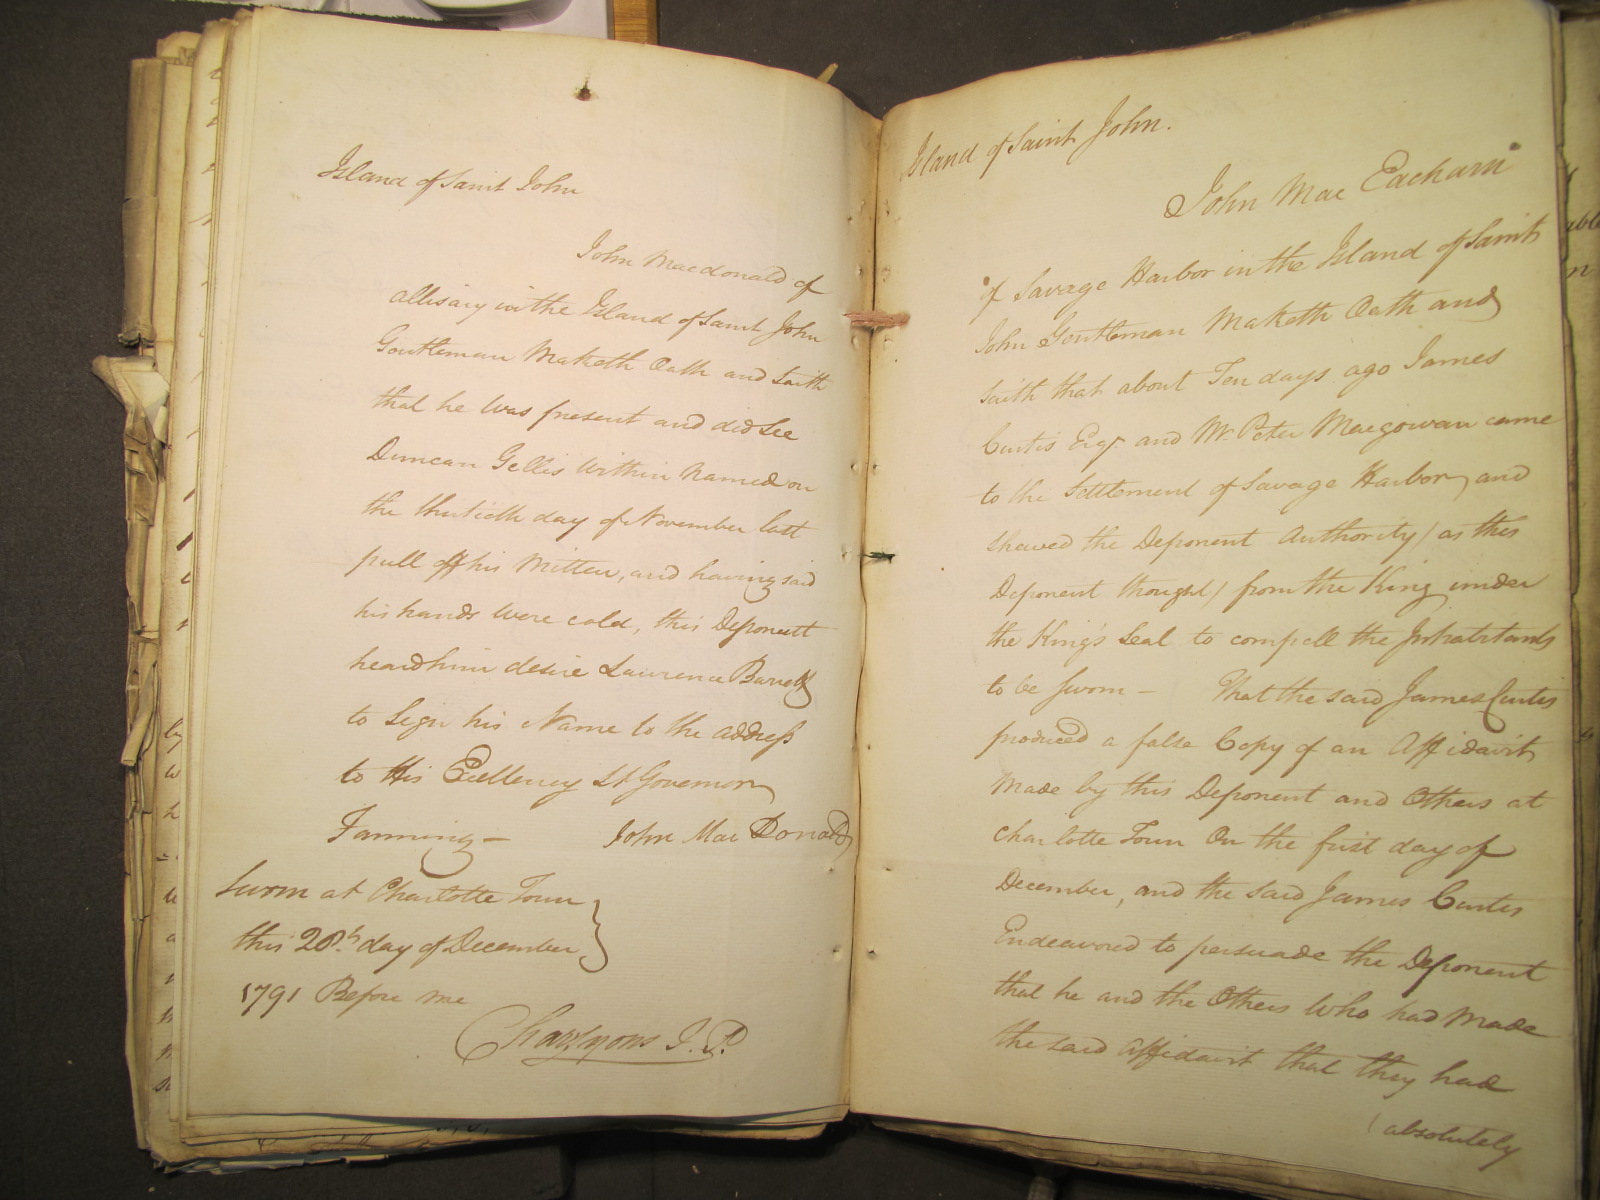 Island of Saint John
John Macdonald of
allisary in the Island of Saint John
Gentleman Maketh Oath and Saith
that he was present and did See
Duncan Gellis within named on
the thirtieth day of November last
pull off his Mitten, and having said
his hands were cold, this Deponent
heard him desire Lawrence Barrett
to Sign his Name to the address
to His Excellency Lt Governor
Fanning—
John Mac Donald
Sworn at Charlotte Town
this 28th day of December
1791 Before me
Chas Lyons J.P.
Island of Saint John.
John Mac Eacharn
of Savage Harbor in the Island of Saint
John Gentleman Maketh Oath and
saith that about Ten days ago James
Curtis Esqr. and Mr. Peter Macgowan came
to the Settlement of Savage Harbor, and
shewed the Deponent Authority / as this
Deponent thought / from the King under
the King's Seal to compell the Inhabitants
to be sworn — That the said James Curtis
produced a false Copy of an Affidavit
Made by this Deponent and Others at
Charlotte Town On the first day of
December, and the said James Curtis
Endeavored to persuade the Deponent
that he and the Others who had Made
the said Affidavit that they had
(absolutely